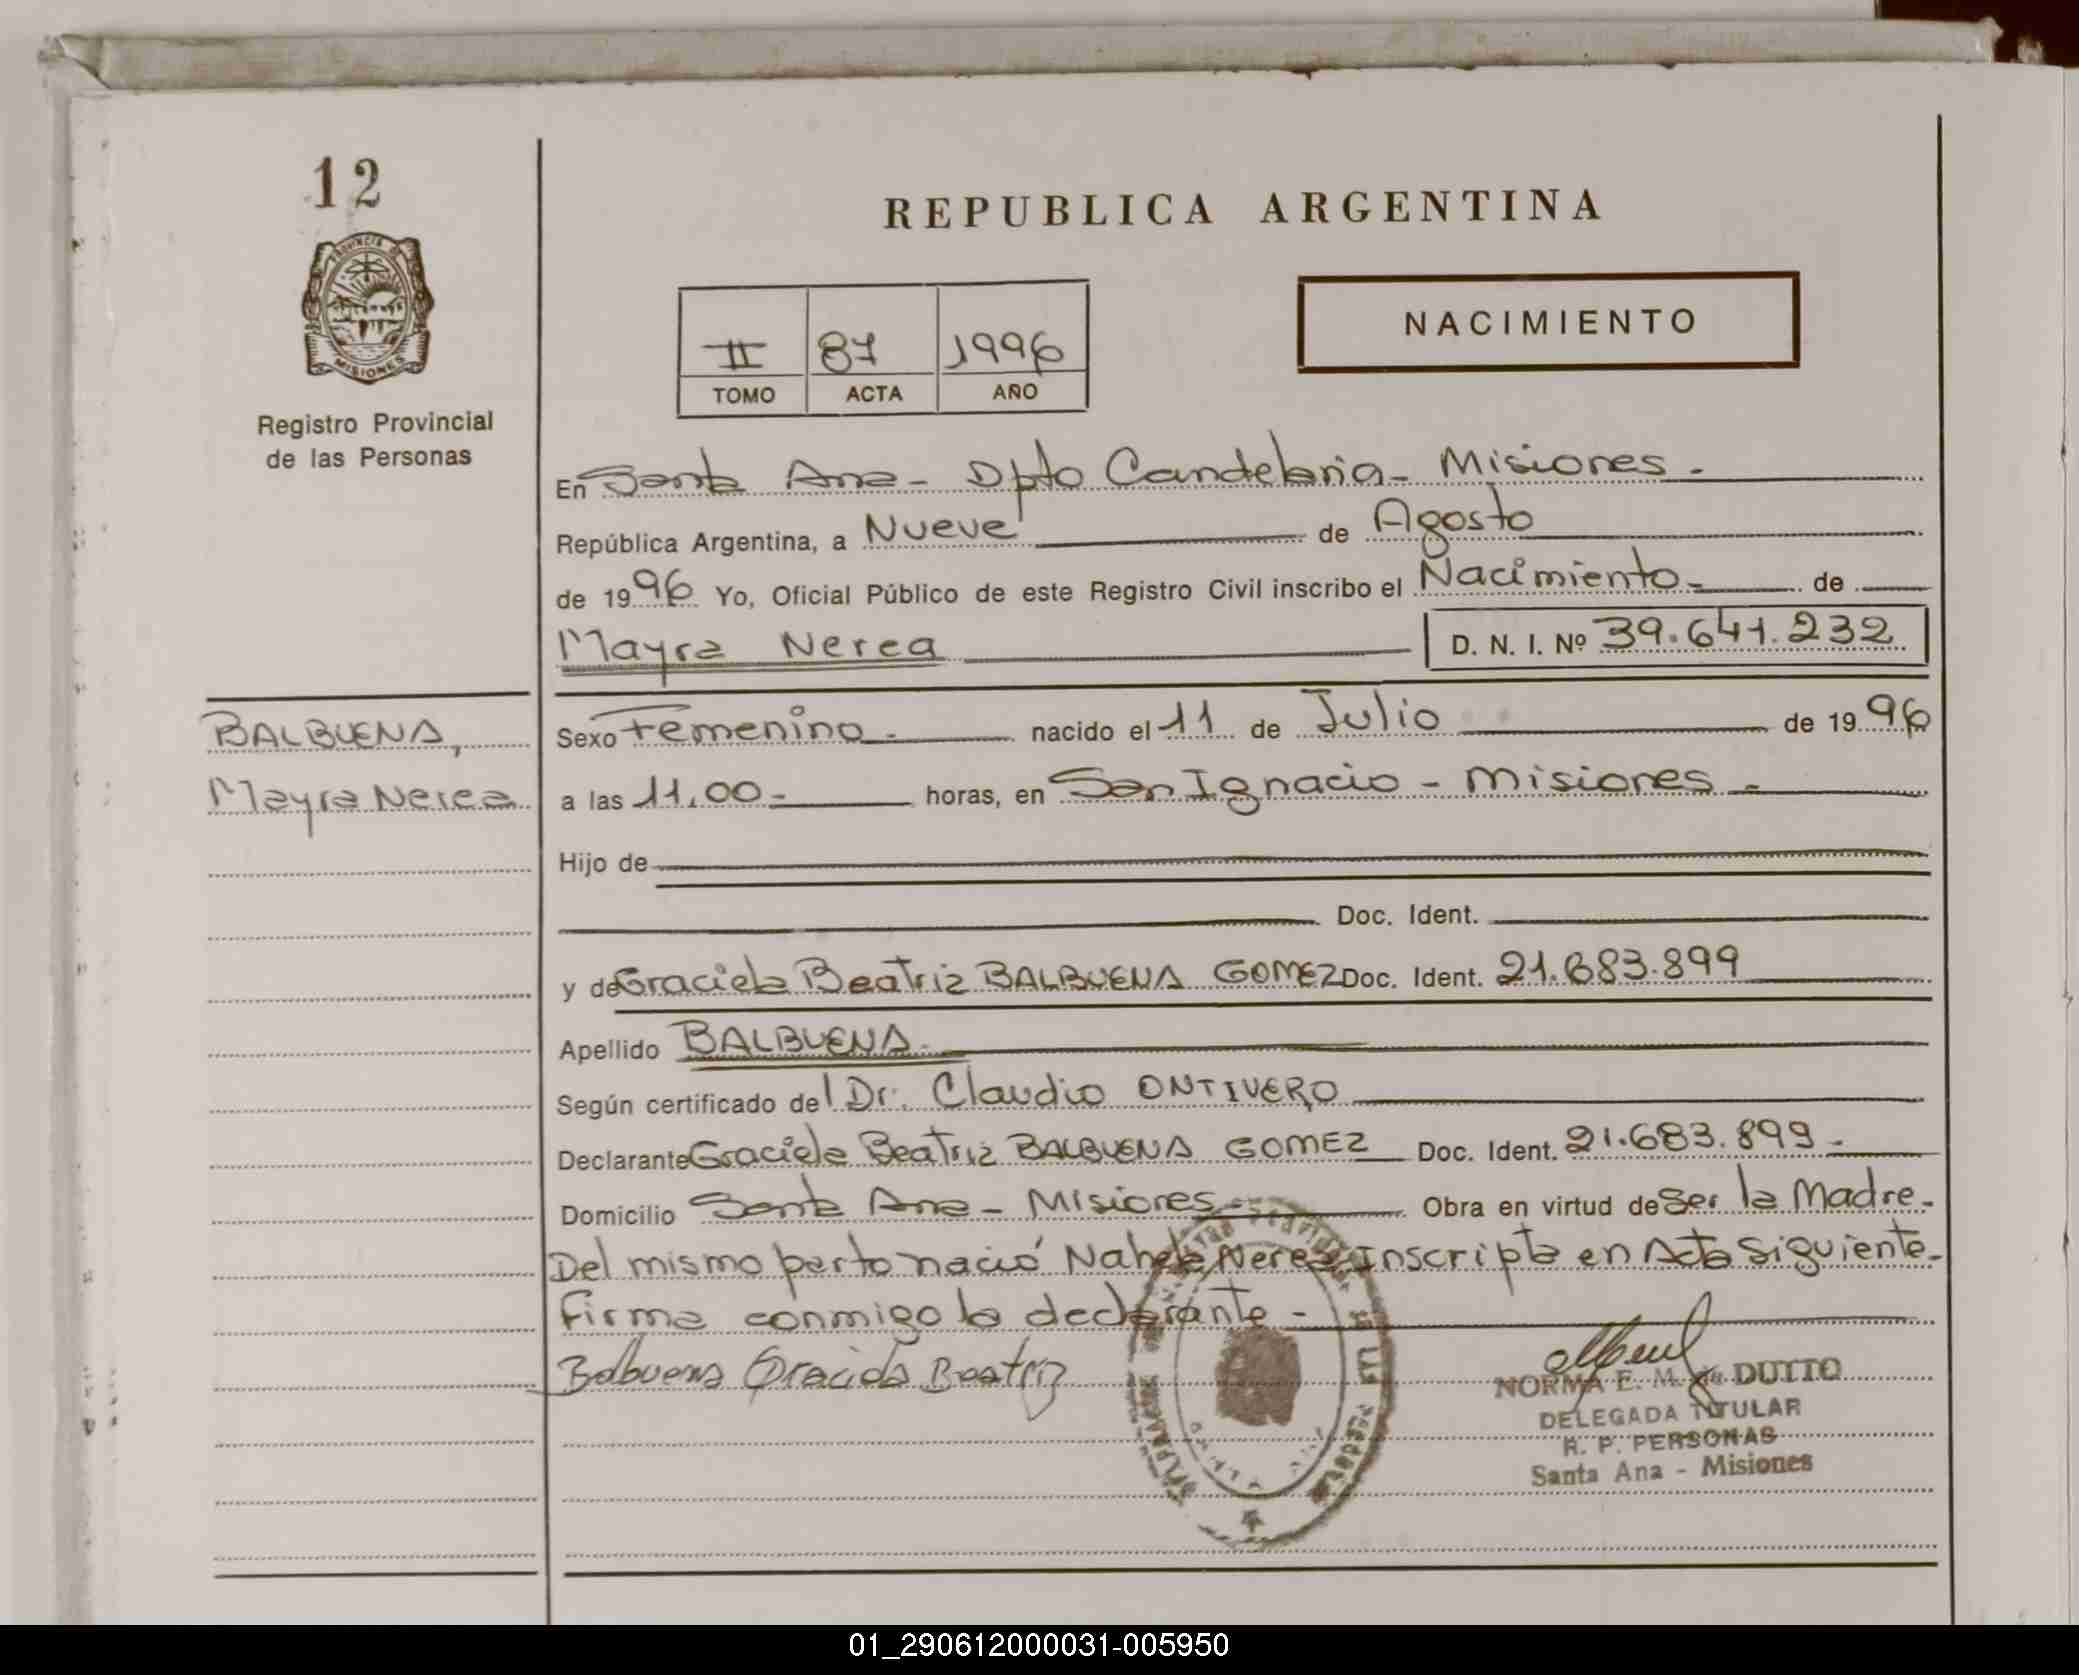 12
REPUBLICA ARGENTINA
PROVINCIA DE
MISIONES
II 87 1996
TOMO ACTA AÑO
NACIMIENTO
Registro Provincial
de las Personas
En Santa Ana - Dpto Candelaria - Misiones.
República Argentina, a Nueve de Agosto
de 1996 Yo, Oficial Público de este Registro Civil inscribo el Nacimiento de
Mayra Nerea D. N. I. Nº 39.641.232
BALBUENA,
Mayra Nerea
Sexo Femenino. nacido el 11 de Julio de 1996
a las 11,00- horas, en San Ignacio - Misiones -
Hijo de
Doc. Ident.
y de Graciela Beatriz BALBUENA GOMEZ Doc. Ident. 21.683.899
Apellido BALBUENA.
Según certificado del Dr. Claudio ONTIVERO
Declarante Graciela Beatriz BALBUENA GOMEZ Doc. Ident. 21.683.899 -
Domicilio Santa Ana - Misiones - Obra en virtud de Ser la Madre.
Del mismo parto nació Nahela Nerea Inscripta en Acta Siguiente-
firma conmigo la declarante -
Balbuena Graciela Beatriz
NORMA E. M. de DUTTO
DELEGADA TITULAR
R. P. PERSONAS
Santa Ana - Misiones
01_290612000031-005950